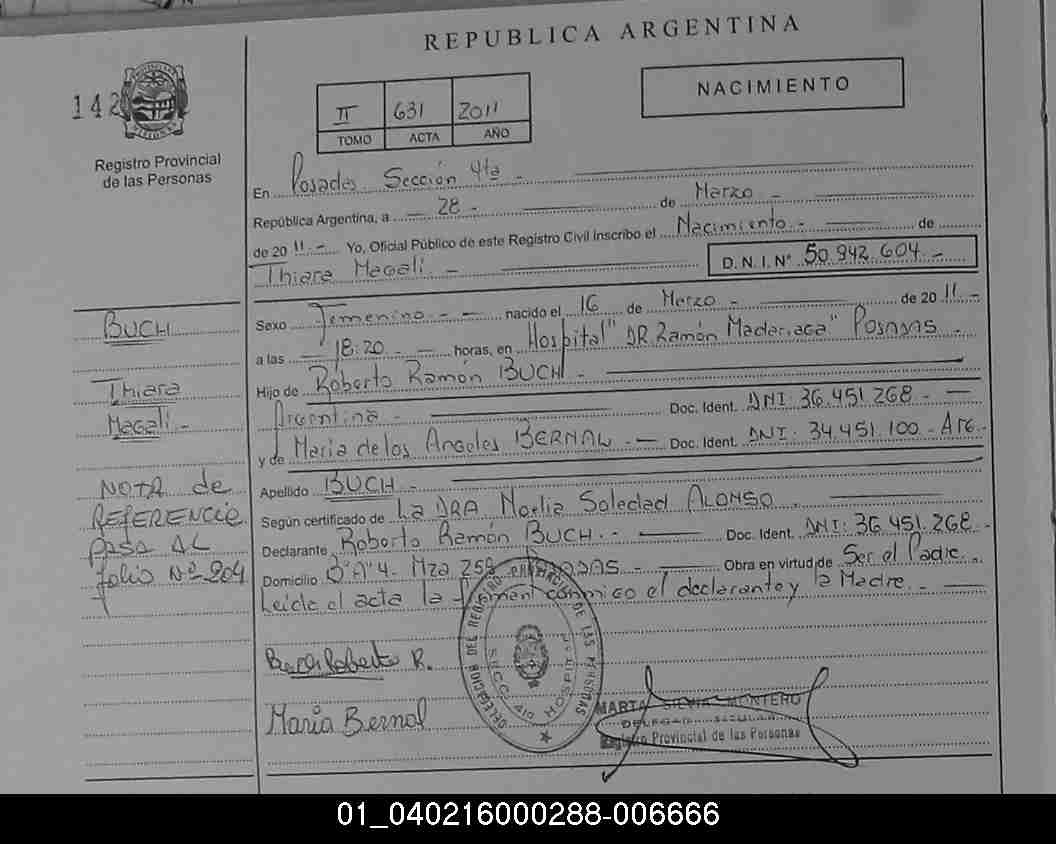 REPUBLICA ARGENTINA
142
Registro Provincial
de las Personas
II 631 2011
TOMO ACTA AÑO
NACIMIENTO
En Posadas Sección 4ta -
República Argentina, a - 28 - de Marzo -
de 20 11 - Yo, Oficial Público de este Registro Civil Inscribo el Nacimiento - de
Thiara Magali - D. N. I. Nº 50.942.604 -
Sexo Femenino - - nacido el 16 de Marzo - de 20 11 -
a las - 18:20 - - horas, en Hospital "DR. Ramón Madariaga" POSADAS -
Hijo de Roberto Ramón BUCH -
Argentina - Doc. Ident. DNI: 36.451.268 -
y de Maria de los Angeles BERNAL - - Doc. Ident. DNI: 34.451.100 - ARG. -
Apellido BUCH -
Según certificado de La DRA Noelia Soledad ALONSO
Declarante Roberto Ramón BUCH - Doc. Ident. DNI: 36.451.268 -
Domicilio Bº "A" 4 - Mza 258 POSADAS - Obra en virtud de Ser el Padre.
Leida el acta la firman conmigo el declarante y la Madre. -
BUCH
Thiara
Magali -
NOTA de
REFERENCIA
pasa AL
folio Nº 204
Buch Roberto R.
Maria Bernal
DELEGACION DEL REGISTRO PROVINCIAL DE LAS PERSONAS
SECC. 4ta HOSPITAL
MARTA SILVIA MONTERO
DELEGADA TITULAR
Registro Provincial de las Personas
01_040216000288-006666